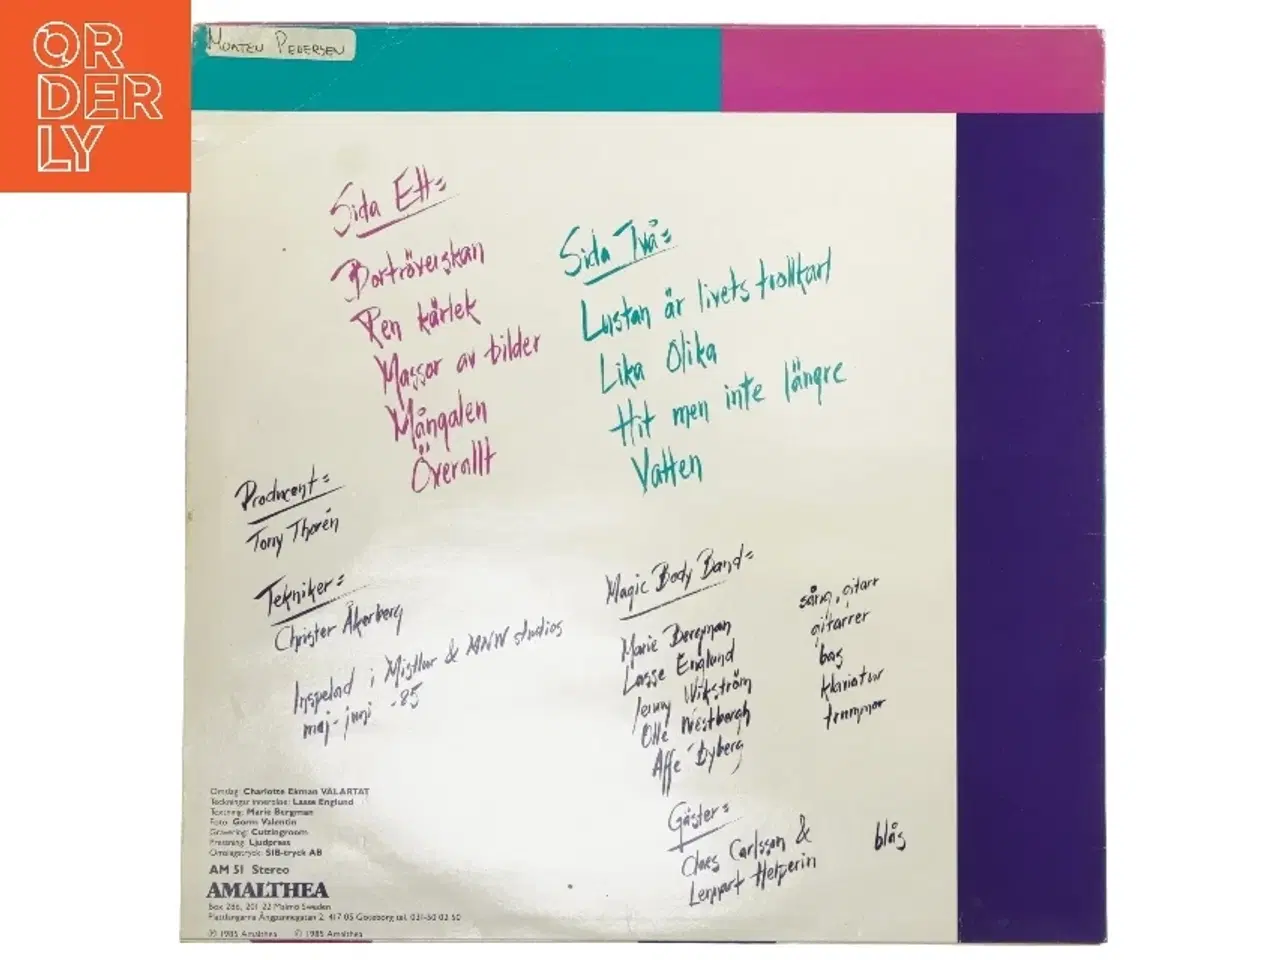 ORDERLY
MORTEN PEDERSEN
Sida Ett=
Bortröverskan
Ren kärlek
Massor av bilder
Mångalen
Överallt
Sida Två=
Lustan är livets trollkarl
Lika Olika
Hit men inte längre
Vatten
Producent=
Tony Thorén
Tekniker=
Christer Åkerberg
Inspelad i Mistlur & MNW studios
maj-juni -85
Magic Body Band=
Marie Bergman sång, gitarr
Lasse Englund gitarrer
Jenny Wikström bas
Olle Westbergh klaviatur
Affe Dyberg trummor
Gäster=
Claes Carlsson &
Lennart Helperin blås
Omslag: Charlotte Ekman VÄLARTAT
Teckningar innerpåse: Lasse Englund
Textning: Marie Bergman
Foto: Gorm Valentin
Gravering: Cuttingroom
Pressning: Ljudpress
Omslagstryck: SIB-tryck AB
AM 51 Stereo
AMALTHEA
Box 266, 201 22 Malmö Sweden
Plattlangarna Ångpannegatan 2, 417 05 Göteborg tel. 031-50 02 50
℗ 1985 Amalthea © 1985 Amalthea